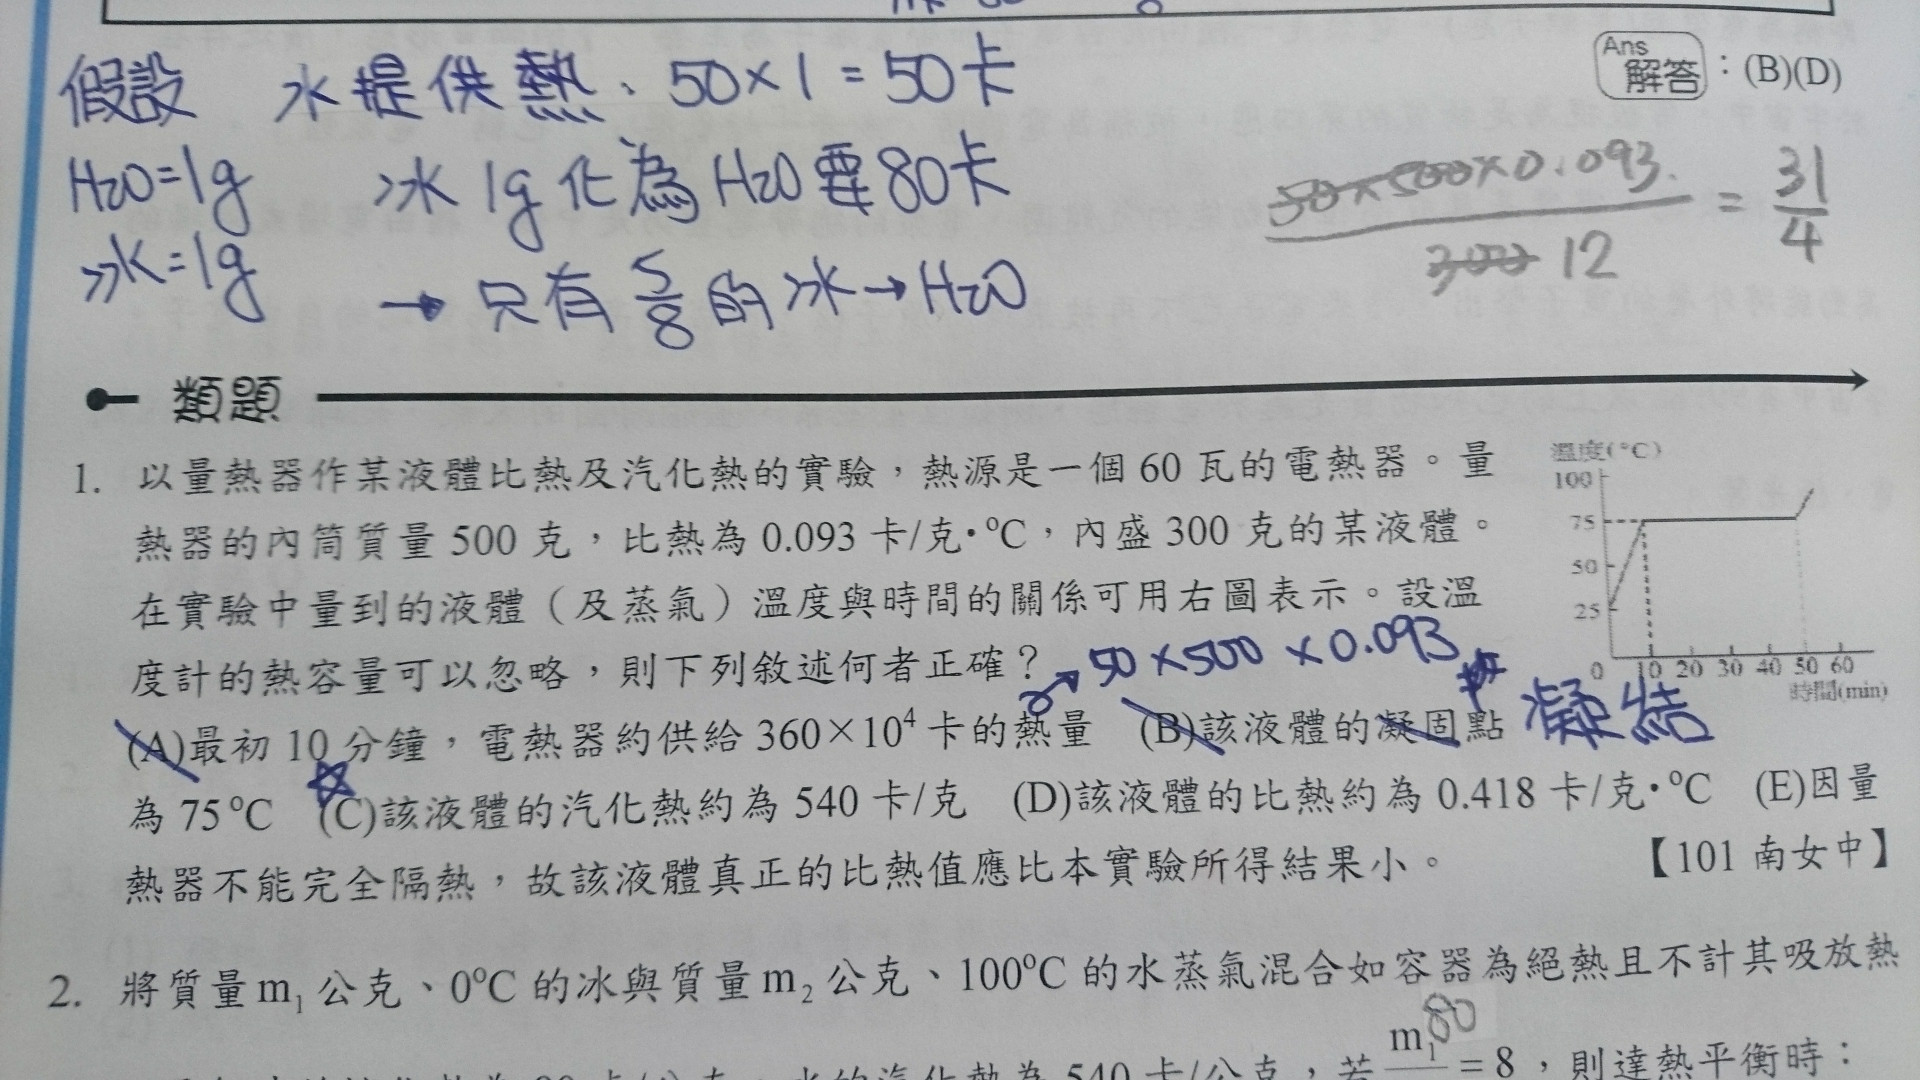 假設 水提供熱、50×1=50卡
Ans 解答：(B)(D)
H2O=1g 冰1g化為H2O要80卡
50×500×0.093 / 300 12 = 31/4
冰=1g → 只有5/8的冰→H2O
類題
1. 以量熱器作某液體比熱及汽化熱的實驗，熱源是一個60瓦的電熱器。量
熱器的內筒質量500克，比熱為0.093卡/克·°C，內盛300克的某液體。
在實驗中量到的液體（及蒸氣）溫度與時間的關係可用右圖表示。設溫
度計的熱容量可以忽略，則下列敘述何者正確？ 50×500×0.093
(A)最初10分鐘，電熱器約供給360×10⁴卡的熱量 (B)該液體的凝固點 凝結
為75°C (C)該液體的汽化熱約為540卡/克 (D)該液體的比熱約為0.418卡/克·°C (E)因量
熱器不能完全隔熱，故該液體真正的比熱值應比本實驗所得結果小。 【101南女中】
溫度(°C)
100
75
50
25
0 10 20 30 40 50 60
時間(min)
2. 將質量m₁公克、0°C的冰與質量m₂公克、100°C的水蒸氣混合如容器為絕熱且不計其吸放熱
80
540卡/公克，若 m₁ =8，則達熱平衡時：